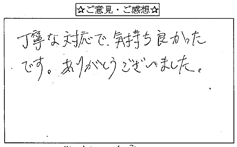 ☆ご意見・ご感想☆
丁寧な対応で、気持ち良かった
です。ありがとうございました。